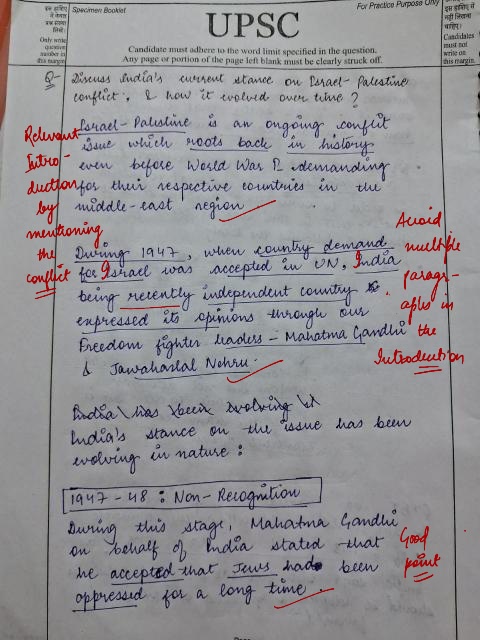 Specimen Booklet
For Practice Purpose Only
UPSC
Candidate must adhere to the word limit specified in the question.
Any page or portion of the page left blank must be clearly struck off.
Only write
question
number in
this margin
Candidates
must not
write on
this margin.
Q- Discuss India's current stance on Israel-Palestine
conflict, & how it evolved over time?
Israel-Palestine is an ongoing conflit
issue which roots back in history
even before World War demanding
for their respective countries in the
middle-east region
Relevant
Intro-
duction
by
mentioning
the
conflict
During 1947, when country demand
for Israel was accepted in UN, India
being recently independent country
expressed its opinions through our
Freedom fighter leaders - Mahatma Gandhi
& Jawaharlal Nehru.
Avoid
multiple
paragr-
aphs in
the
Introduction
India has been evolving
India's stance on the issue has been
evolving in nature :
1947-48 : Non-Recognition
During this stage, Mahatma Gandhi
on behalf of India stated that
he accepted that Jews had been
oppressed for a long time.
Good
point